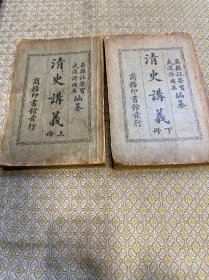 吳縣汪榮寶
武進許國英
編纂
清史講義
上冊
商務印書館發行
吳縣汪榮寶
武進許國英
編纂
清史講義
下冊
商務印書館發行